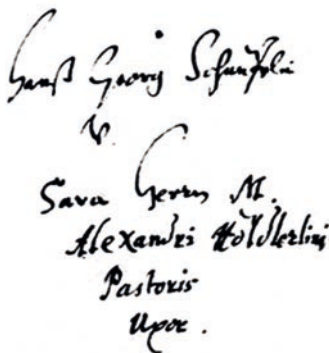 Hanß Georg Schnäfele
V.
Sara Herrn M.
Alexandri Höldlerlini
Pastoris
Uxor.